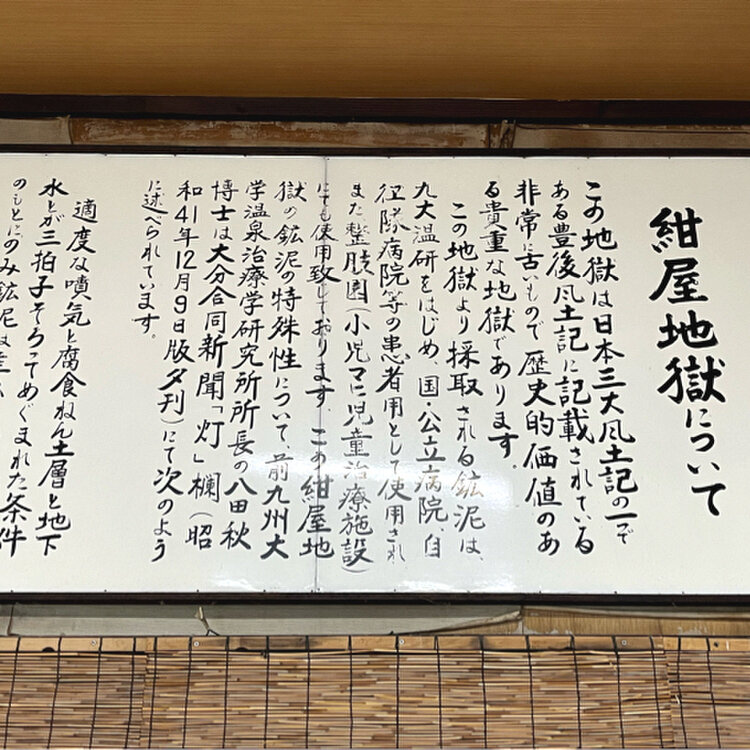 紺屋地獄について
この地獄は日本三大風土記の一で
ある豊後風土記に記載されている
非常に古いもので歴史的価値のあ
る貴重な地獄であります。
この地獄より採取される鉱泥は、
九大温研をはじめ、国・公立病院、自
衛隊病院等の患者用として使用され
また整肢園(小児マヒ児童治療施設)
にても使用致しております。この紺屋地
獄の鉱泥の特殊性について、前九州大
学温泉治療学研究所所長の八田秋
博士は大分合同新聞「灯」欄(昭
和41年12月9日版夕刊)にて次のよう
に述べられています。
適度な噴気と腐食ねん土層と地下
水とが三拍子そろってめぐまれた条件
のもとにのみ鉱泥は